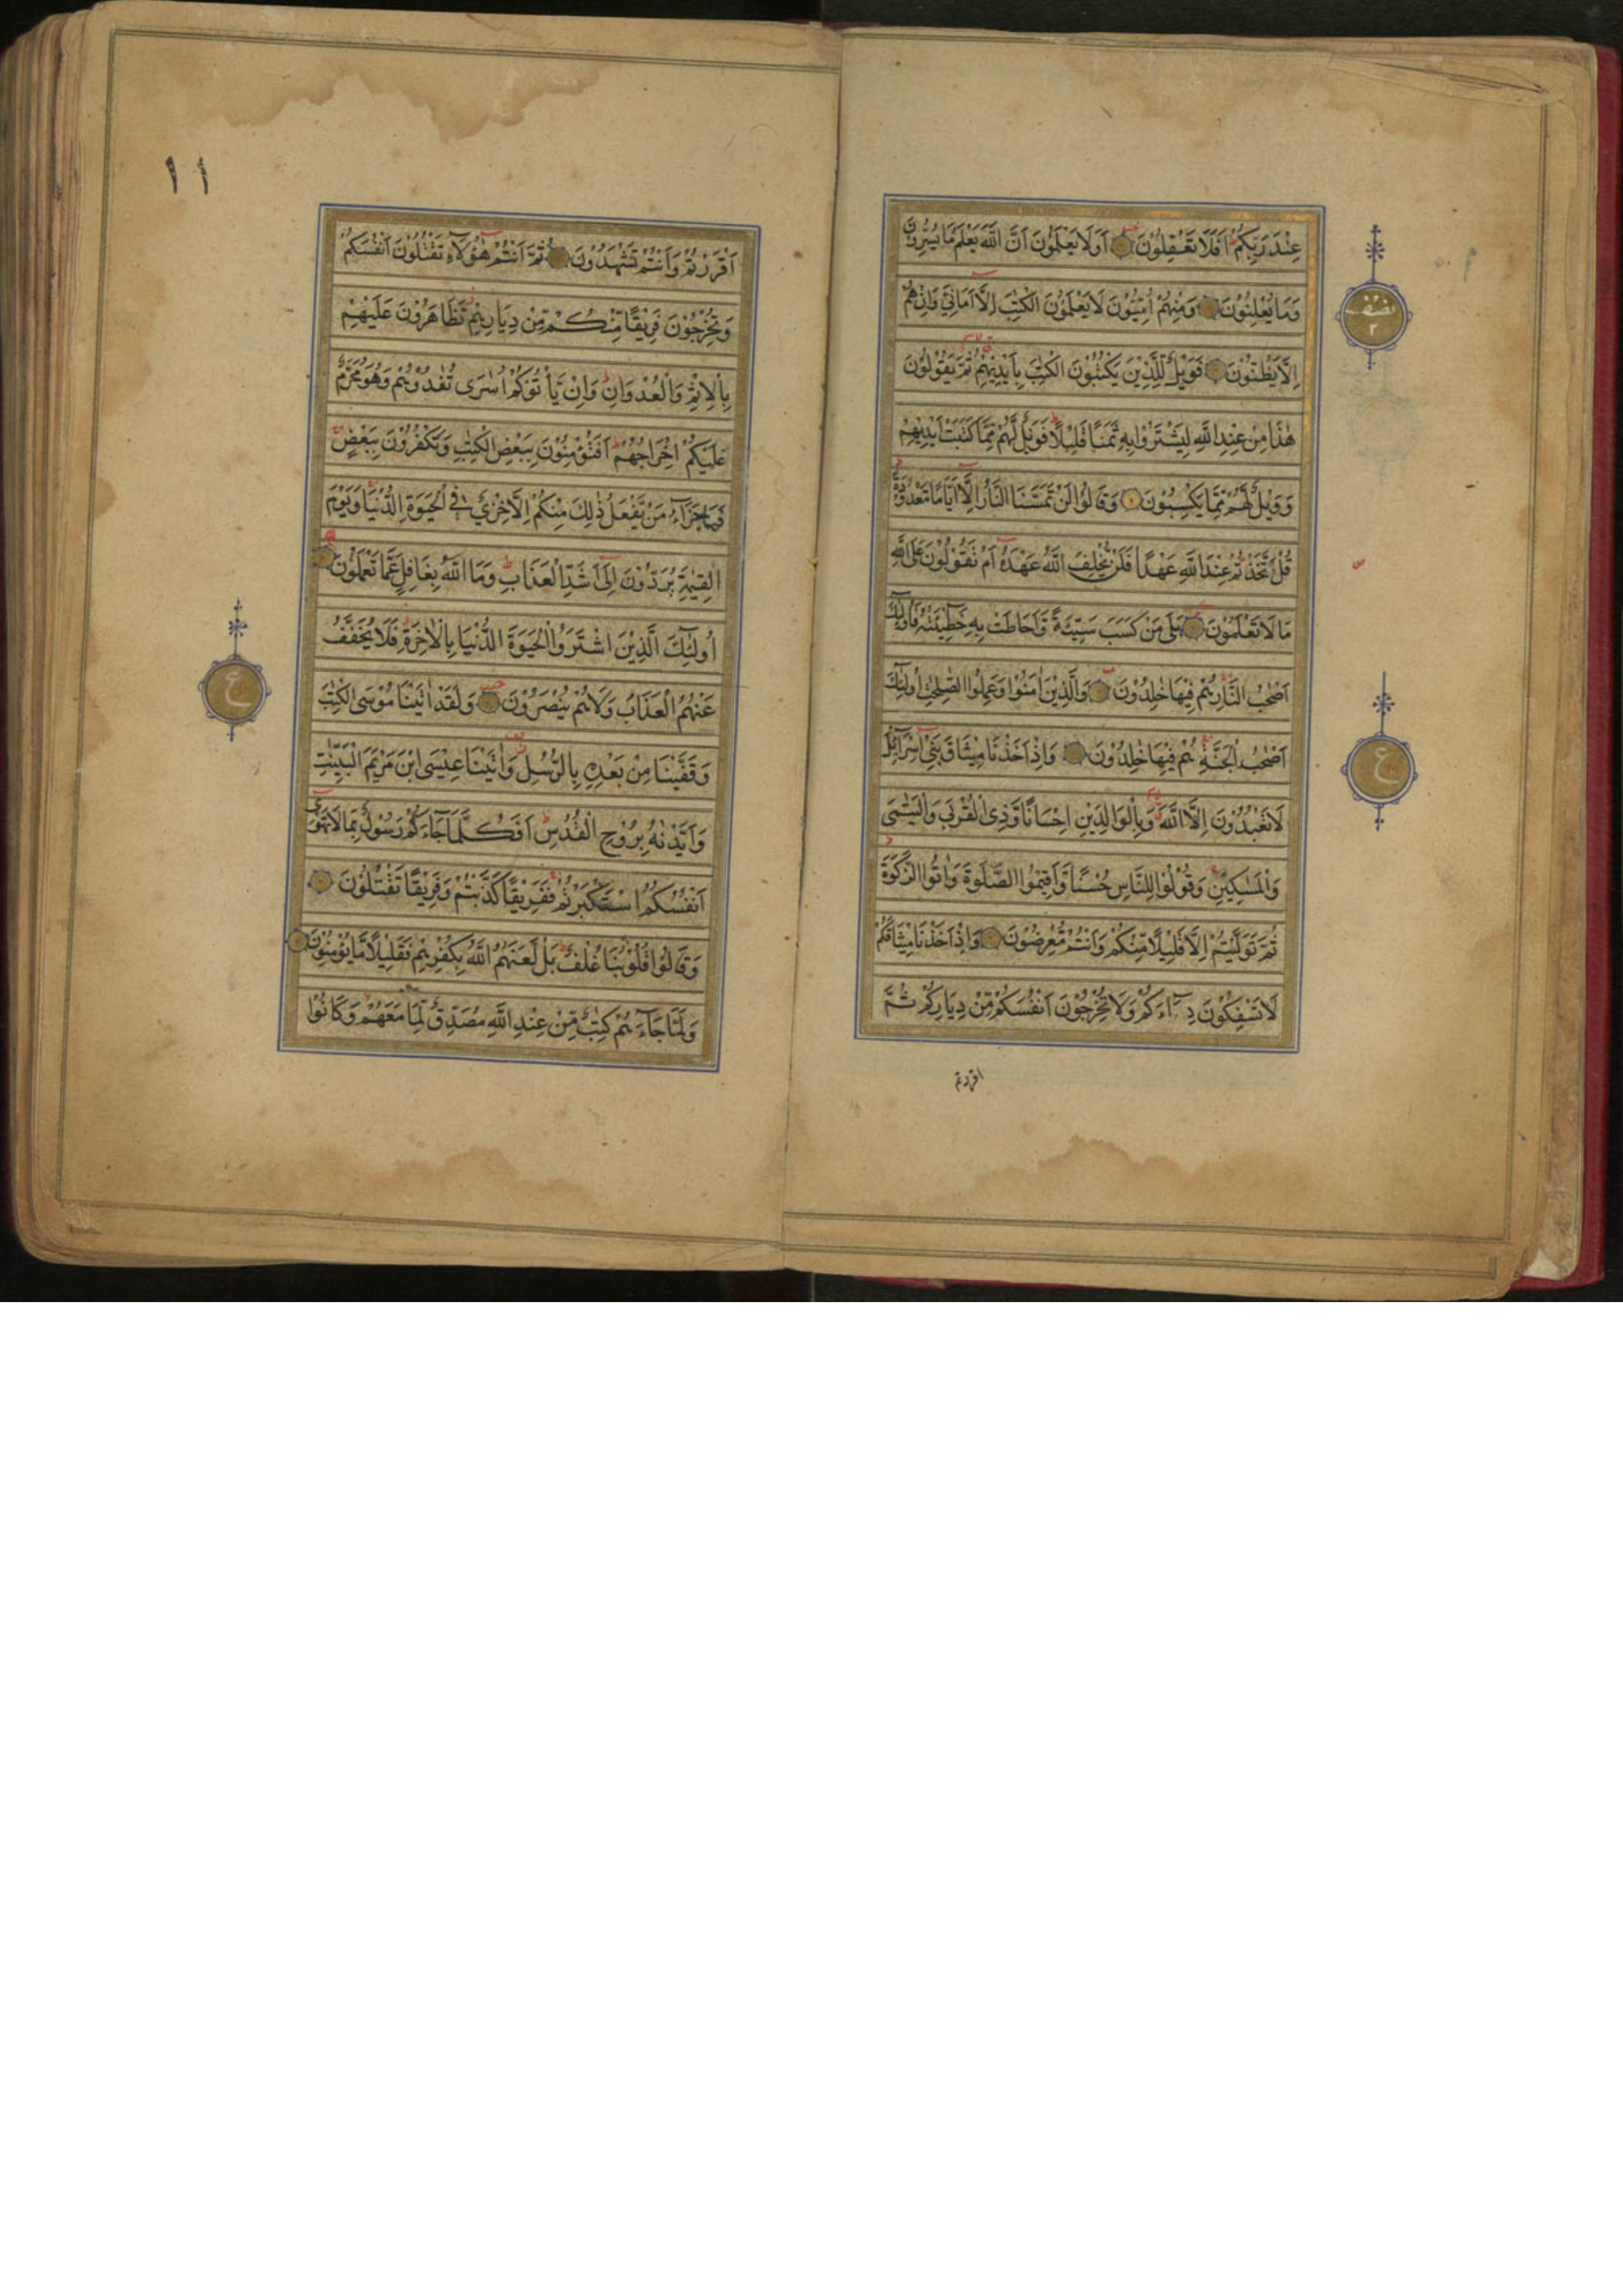 عِنْدَ رَبِّكُمْ اَفَلَا تَعْقِلُوْنَ اَوَلَا يَعْلَمُوْنَ اَنَّ اللّٰهَ يَعْلَمُ مَا يُسِرُّوْنَ
وَمَا يُعْلِنُوْنَ وَمِنْهُمْ اُمِّيُّوْنَ لَا يَعْلَمُوْنَ الْكِتٰبَ اِلَّا اَمَانِيَّ وَاِنْ هُمْ
نصف
٢
اِلَّا يَظُنُّوْنَ فَوَيْلٌ لِلَّذِيْنَ يَكْتُبُوْنَ الْكِتٰبَ بِاَيْدِيْهِمْ ثُمَّ يَقُوْلُوْنَ
هٰذَا مِنْ عِنْدِ اللّٰهِ لِيَشْتَرُوْا بِهِ ثَمَنًا قَلِيْلًا فَوَيْلٌ لَّهُمْ مِّمَّا كَتَبَتْ اَيْدِيْهِمْ
وَوَيْلٌ لَّهُمْ مِّمَّا يَكْسِبُوْنَ وَقَالُوْا لَنْ تَمَسَّنَا النَّارُ اِلَّا اَيَّامًا مَّعْدُوْدَةً
قُلْ اَتَّخَذْتُمْ عِنْدَ اللّٰهِ عَهْدًا فَلَنْ يُّخْلِفَ اللّٰهُ عَهْدَهُ اَمْ تَقُوْلُوْنَ عَلَى اللّٰهِ
مَا لَا تَعْلَمُوْنَ بَلٰى مَنْ كَسَبَ سَيِّئَةً وَّاَحَاطَتْ بِهِ خَطِيْئَتُهُ فَاُولٰئِكَ
اَصْحٰبُ النَّارِ هُمْ فِيْهَا خٰلِدُوْنَ وَالَّذِيْنَ اٰمَنُوْا وَعَمِلُوا الصّٰلِحٰتِ اُولٰئِكَ
اَصْحٰبُ الْجَنَّةِ هُمْ فِيْهَا خٰلِدُوْنَ وَاِذْ اَخَذْنَا مِيْثَاقَ بَنِيْ اِسْرَآئِلَ
ع
لَا تَعْبُدُوْنَ اِلَّا اللّٰهَ وَبِالْوَالِدَيْنِ اِحْسَانًا وَّذِي الْقُرْبٰى وَالْيَتٰمٰى
وَالْمَسٰكِيْنِ وَقُوْلُوْا لِلنَّاسِ حُسْنًا وَّاَقِيْمُوا الصَّلٰوةَ وَاٰتُوا الزَّكٰوةَ
ثُمَّ تَوَلَّيْتُمْ اِلَّا قَلِيْلًا مِّنْكُمْ وَاَنْتُمْ مُّعْرِضُوْنَ وَاِذْ اَخَذْنَا مِيْثَاقَكُمْ
لَا تَسْفِكُوْنَ دِمَآءَكُمْ وَلَا تُخْرِجُوْنَ اَنْفُسَكُمْ مِّنْ دِيَارِكُمْ ثُمَّ
اقررتم
١١
اَقْرَرْتُمْ وَاَنْتُمْ تَشْهَدُوْنَ ثُمَّ اَنْتُمْ هٰؤُلَاءِ تَقْتُلُوْنَ اَنْفُسَكُمْ
وَتُخْرِجُوْنَ فَرِيْقًا مِّنْكُمْ مِّنْ دِيَارِهِمْ تَظَاهَرُوْنَ عَلَيْهِمْ
بِالْاِثْمِ وَالْعُدْوَانِ وَاِنْ يَّأْتُوْكُمْ اُسٰرٰى تُفٰدُوْهُمْ وَهُوَ مُحَرَّمٌ
عَلَيْكُمْ اِخْرَاجُهُمْ اَفَتُؤْمِنُوْنَ بِبَعْضِ الْكِتٰبِ وَتَكْفُرُوْنَ بِبَعْضٍ
فَمَا جَزَآءُ مَنْ يَّفْعَلُ ذٰلِكَ مِنْكُمْ اِلَّا خِزْيٌ فِي الْحَيٰوةِ الدُّنْيَا وَيَوْمَ
الْقِيٰمَةِ يُرَدُّوْنَ اِلٰى اَشَدِّ الْعَذَابِ وَمَا اللّٰهُ بِغَافِلٍ عَمَّا تَعْمَلُوْنَ
اُولٰئِكَ الَّذِيْنَ اشْتَرَوُا الْحَيٰوةَ الدُّنْيَا بِالْاٰخِرَةِ فَلَا يُخَفَّفُ
عَنْهُمُ الْعَذَابُ وَلَا هُمْ يُنْصَرُوْنَ وَلَقَدْ اٰتَيْنَا مُوْسَى الْكِتٰبَ
ع
وَقَفَّيْنَا مِنْ بَعْدِهِ بِالرُّسُلِ وَاٰتَيْنَا عِيْسَى ابْنَ مَرْيَمَ الْبَيِّنٰتِ
وَاَيَّدْنٰهُ بِرُوْحِ الْقُدُسِ اَفَكُلَّمَا جَآءَكُمْ رَسُوْلٌ بِمَا لَا تَهْوٰى
اَنْفُسُكُمُ اسْتَكْبَرْتُمْ فَفَرِيْقًا كَذَّبْتُمْ وَفَرِيْقًا تَقْتُلُوْنَ
وَقَالُوْا قُلُوْبُنَا غُلْفٌ بَلْ لَّعَنَهُمُ اللّٰهُ بِكُفْرِهِمْ فَقَلِيْلًا مَّا يُؤْمِنُوْنَ
وَلَمَّا جَآءَهُمْ كِتٰبٌ مِّنْ عِنْدِ اللّٰهِ مُصَدِّقٌ لِّمَا مَعَهُمْ وَكَانُوْا